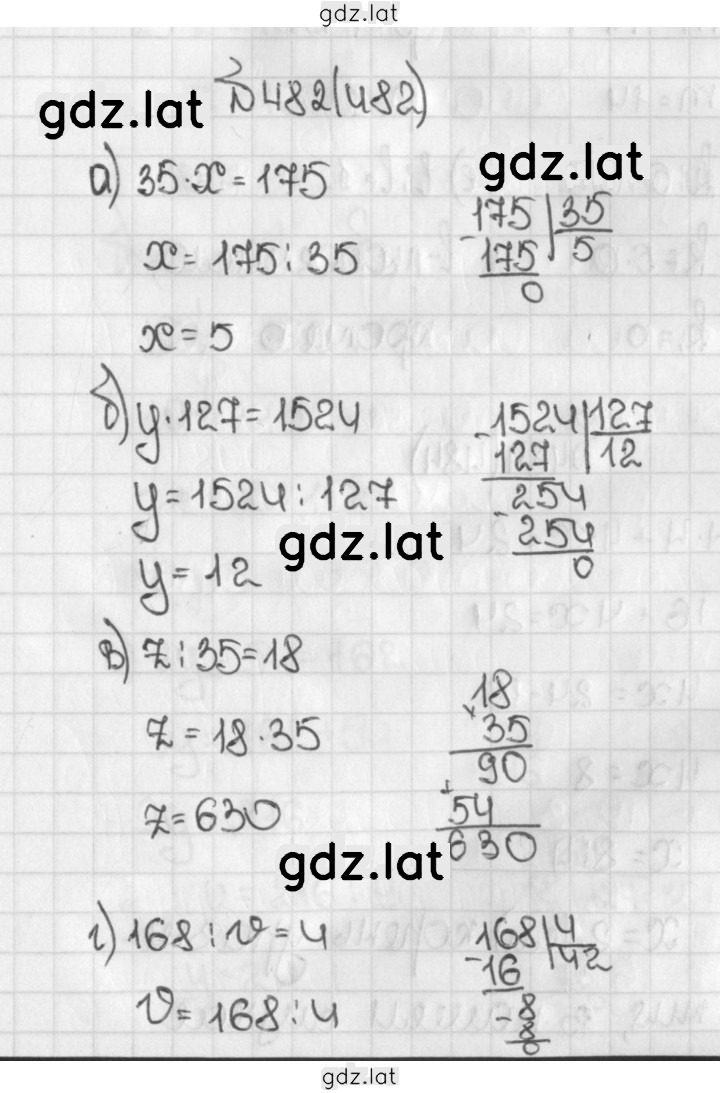 gdz.lat
№482(482)
gdz.lat
а) 35·x=175
gdz.lat
x=175:35
175 35
175 5
0
x=5
б) y·127=1524
y=1524:127
1524 127
127 12
254
254
0
gdz.lat
y=12
в) z:35=18
z=18·35
18
×35
90
+54
630
z=630
gdz.lat
г) 168:v=4
v=168:4
168 4
-16 42
-8
8
0
gdz.lat